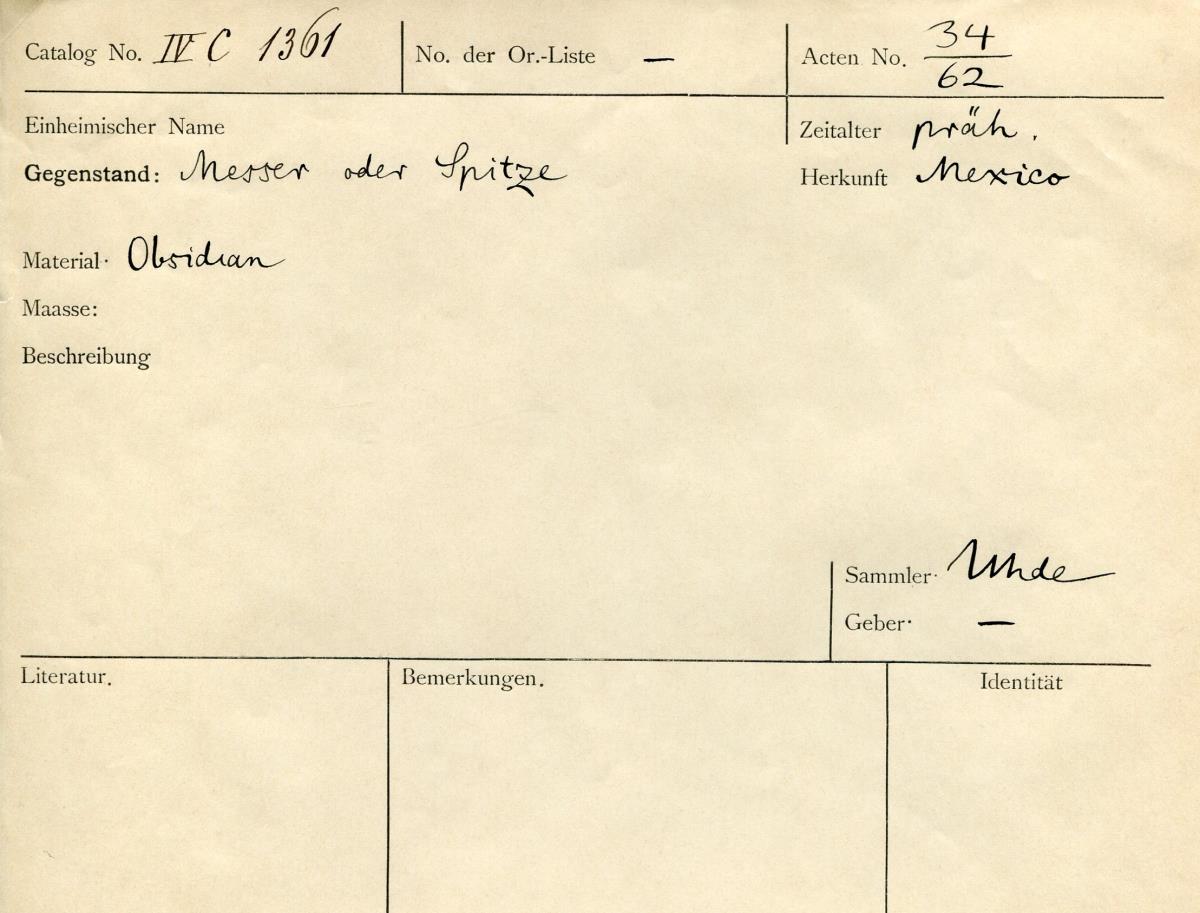 Catalog No. IV C 1361 No. der Or.-Liste — Acten No. 34/62
Einheimischer Name Zeitalter präh.
Gegenstand: Messer oder Spitze Herkunft Mexico
Material· Obsidian
Maasse:
Beschreibung
Sammler· Uhde
Geber· —
Literatur. Bemerkungen. Identität